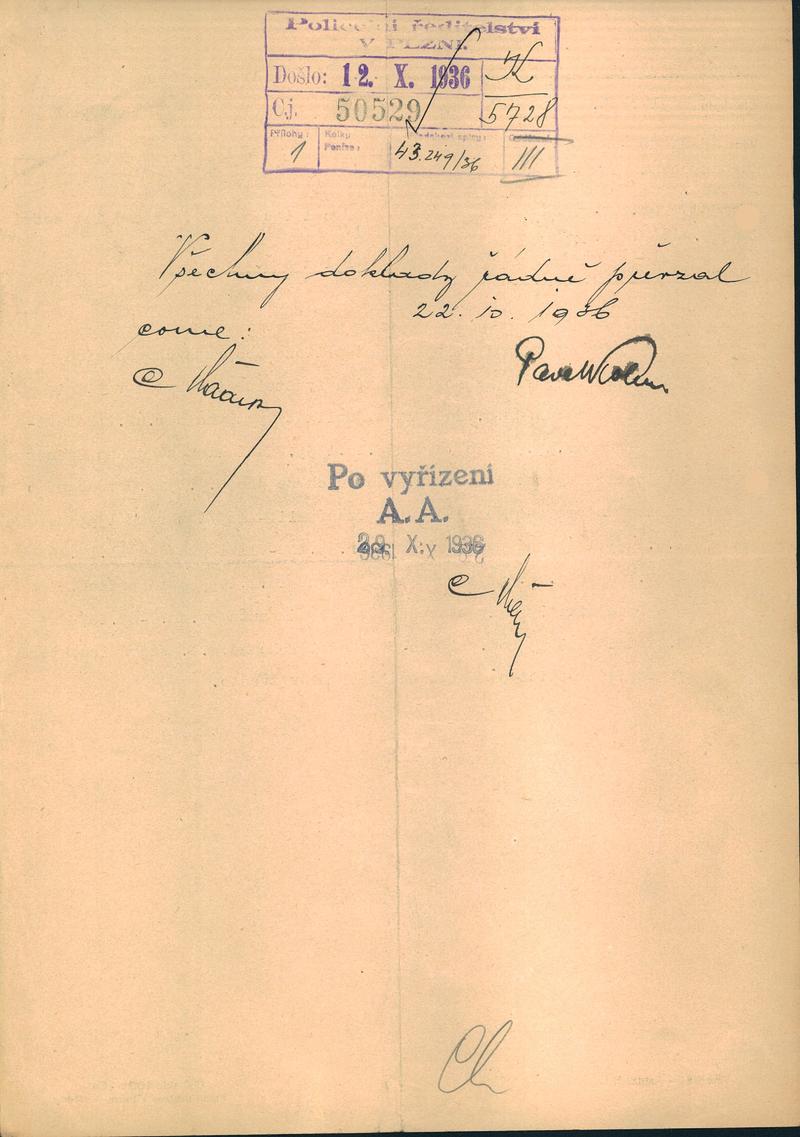 Policejní ředitelství
V PLZNI.
Došlo: 12. X. 1936 K
Čj. 50529 5728
Přílohy: 1 Kolky Peníze: 43.249/36 III
Všechny doklady řádně převzal
22. 10. 1936
couie:
Po vyřízení
A.A.
29. X. 1936